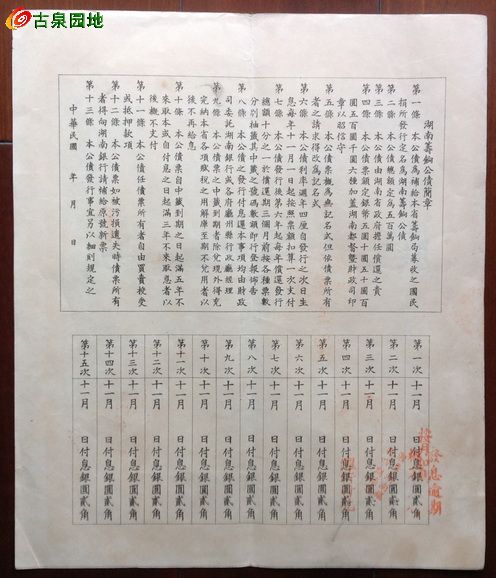 古泉园地
湖南籌餉公債簡章
第一條　本公債為補給本省籌餉局募收之國民
捐所發行定名為湖南籌餉公債
第二條　本公債總額定為五百萬圓
第三條　本公債由湖南省政府擔任償還之責
第四條　本公債票額定銀幣五圓十圓五十圓百
圓五百圓千圓六種加蓋湖南都督暨財政司印
章以昭信守
第五條　本公債票概為無記名式但依債票所有
者之請求得改為記名式
第六條　本公債利率週年四厘自發行之次日生
息每年十一月一日起按照票額扣算一次支付
第七條　本公債發行後第六年起每年償還發行
總額十分之一於償還期三個月前按各種票數
分別抽籤其中籤之號碼數額即行登報佈告
第八條　本公債之發行付息還本事項均由財政
司委託湖南銀行或各府廳州縣行政廳經理
第九條　本公債票之中籤到期者除兌現外得充
完納本省各項賦稅之用解庫至期不兌用者以
後不再給息
第十條　本公債票自中籤到期之日起滿五年不
來取本或自付息之日起滿三年不來取息者以
後概不支付
第十一條　本公債任債票所有者自由買賣授受
或抵押款項
第十二條　本公債票如被污損遺失時債票所有
者得向湖南銀行請補給原號新票
第十三條　本公債發行事宜另以細則規定之
中華民國　年　月　日
第一次十一月　日付息銀圓貳角
第二次十一月　日付息銀圓貳角
第三次十一月　日付息銀圓貳角
第四次十一月　日付息銀圓貳角
第五次十一月　日付息銀圓貳角
第六次十一月　日付息銀圓貳角
第七次十一月　日付息銀圓貳角
第八次十一月　日付息銀圓貳角
第九次十一月　日付息銀圓貳角
第十次十一月　日付息銀圓貳角
第十一次十一月　日付息銀圓貳角
第十二次十一月　日付息銀圓貳角
第十三次十一月　日付息銀圓貳角
第十四次十一月　日付息銀圓貳角
第十五次十一月　日付息銀圓貳角